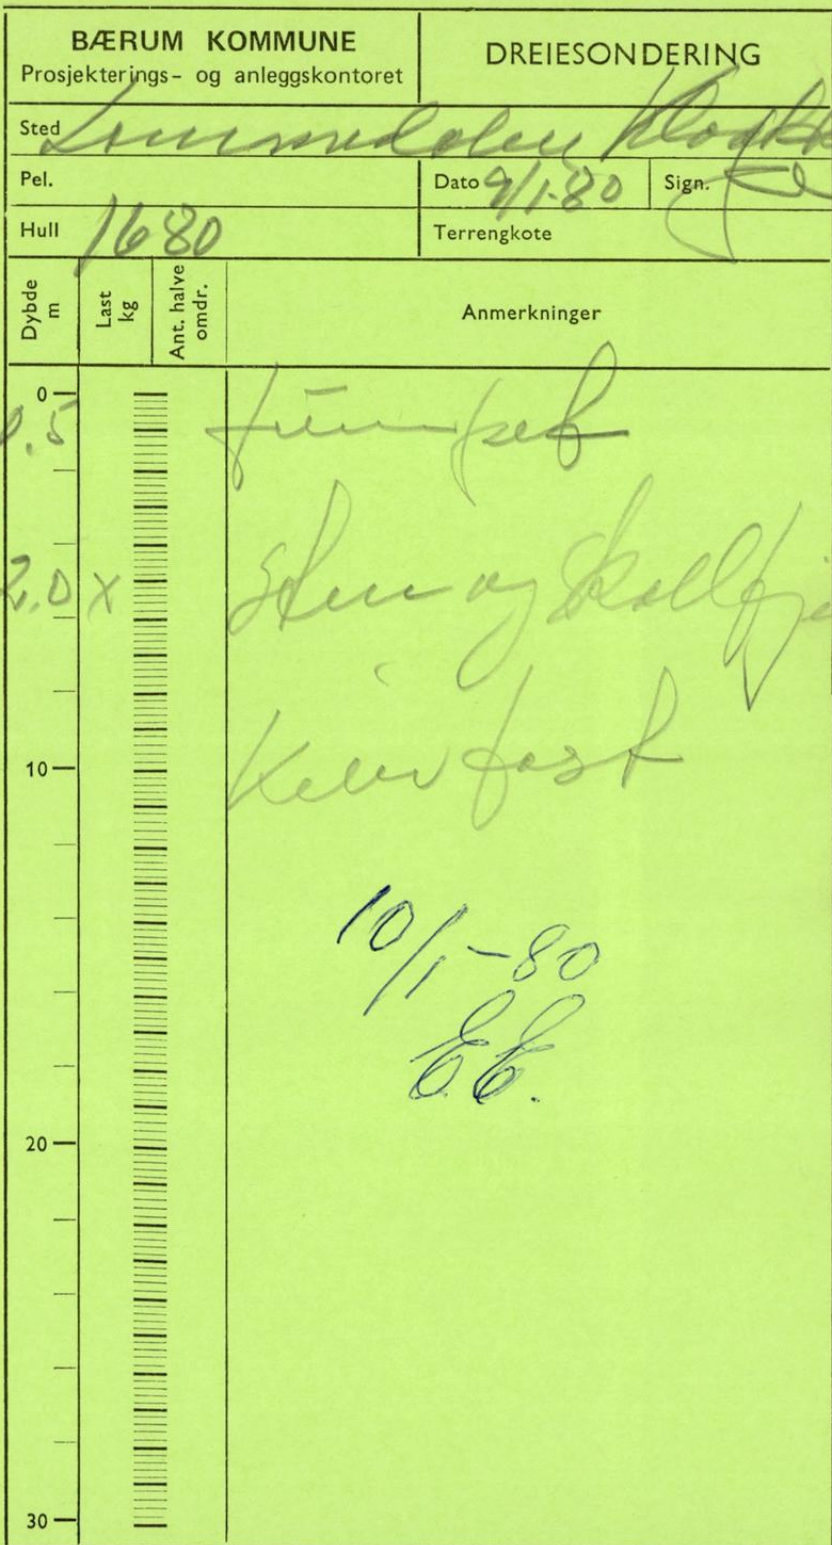 BÆRUM KOMMUNE
Prosjekterings- og anleggskontoret
DREIESONDERING
Sted Lommedalen Kloakk
Pel.
Dato 9/1-80
Sign.
Hull 1680
Terrengkote
Dybde m
Last kg
Ant. halve omdr.
Anmerkninger
0
0.5
2.0 x Sten og skallfj
fast
10
10/1-80
E.E.
20
30